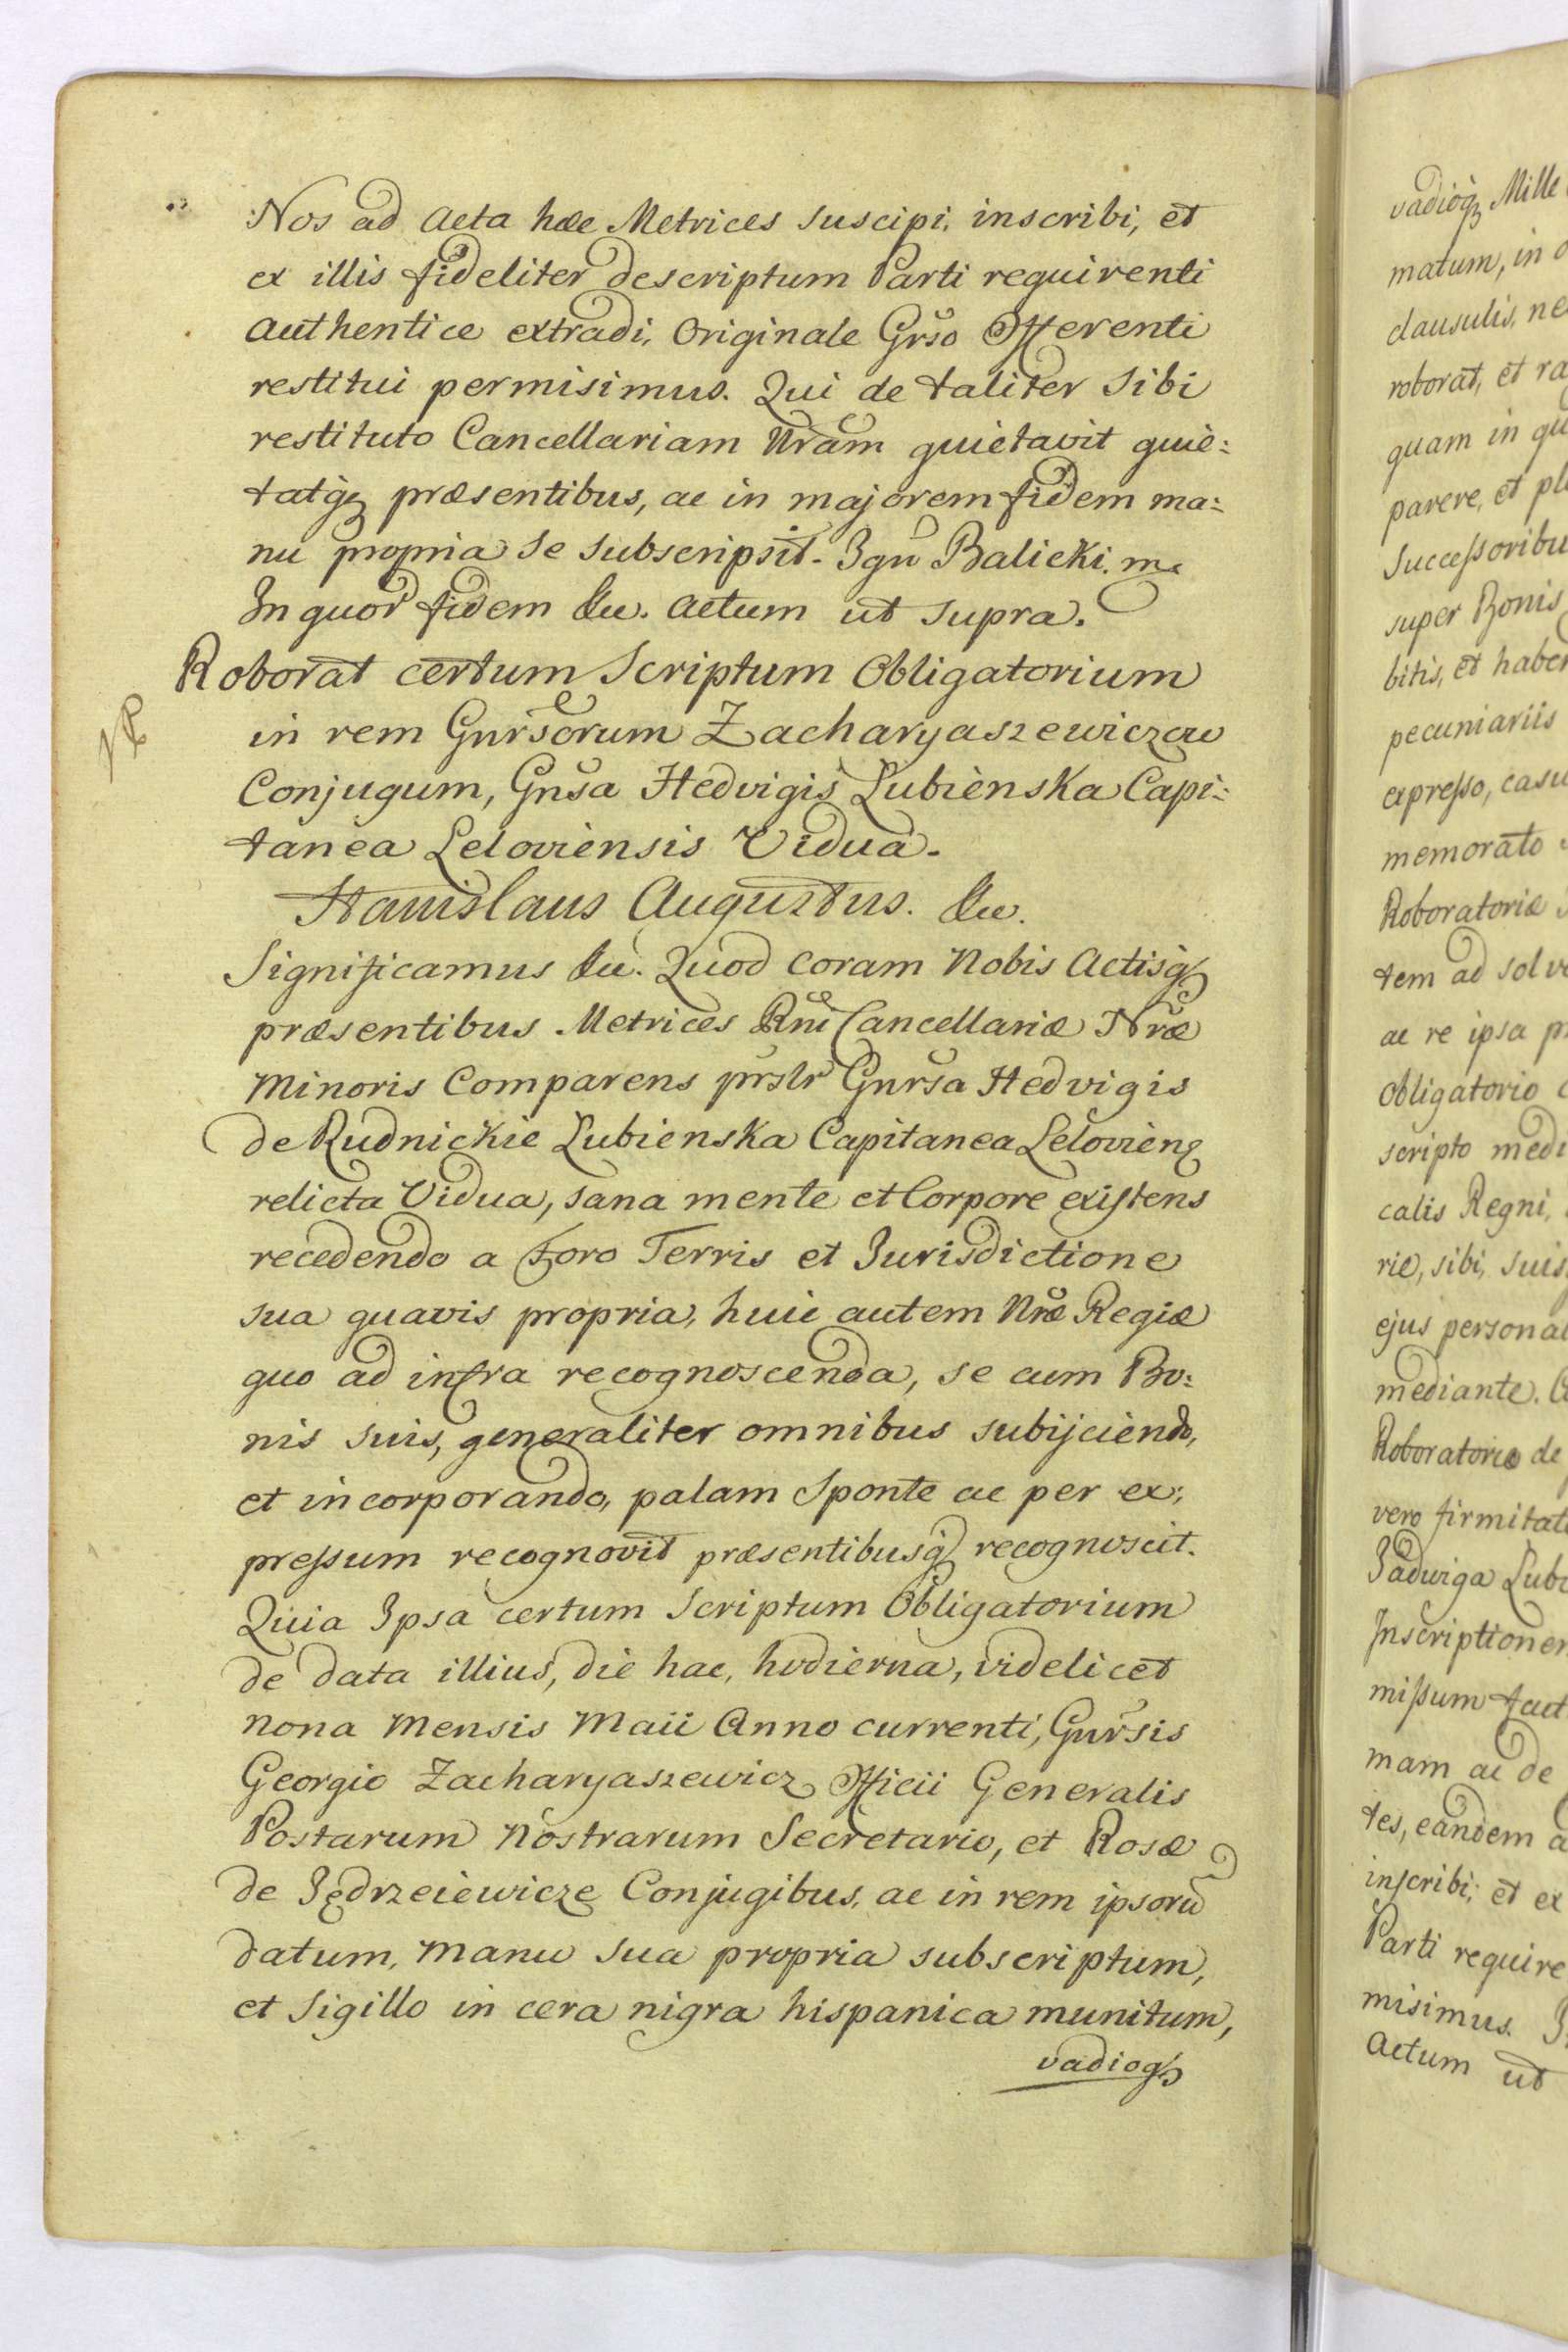 Nos ad Acta hæc Metrices suscipi, inscribi, et
ex illis fideliter descriptum Parti requirenti
authentice extradi, Originale Gnrso Offerenti
restitui permisimus. Qui de taliter sibi
restituto Cancellariam Nram quietavit quie:
tatq; præsentibus, ac in majorem fidem ma:
nu propria se subscripsit. Ign Balicki. m
In quor fidem &c. Actum ut supra.
Roborat certum Scriptum Obligatorium
in rem Gnrsorum Zacharyaszewiczow
Conjugum, Gnsa Hedvigis Lubienska Capi:
tanea Leloviensis Vidua.
NB
Stanislaus Augustus. &c.
Significamus &c. Quod coram Nobis Actisq;
præsentibus Metrices Rni Cancellariæ Nræ
Minoris Comparens prslr Gnrsa Hedvigis
de Rudnickie Lubienska Capitanea Lelovien;
relicta Vidua, sana mente et Corpore existens
recedendo a Foro Terris et Jurisdictione
sua quavis propria, huic autem Nræ Regiæ
quo ad infra recognoscenda, se cum Bo:
nis suis, generaliter omnibus subijciendo,
et incorporando, palam sponte ac per ex:
pressum recognovit præsentibusq; recognoscit.
Quia Ipsa certum Scriptum Obligatorium
de data illius, die hac, hodierna, videlicet
nona Mensis Maii Anno currenti, Gnrsis
Georgio Zacharyaszewicz Officii Generalis
Postarum Nostrarum Secretario, et Rosæ
de Jędrzeiewicze Conjugibus, ac in rem ipsorū
datum, manu sua propria subscriptum,
et Sigillo in cera nigra hispanica munitum,
vadioq;
vadioq; Mille
matum, in
clausulis, ne
roborat, et ra
quam in qu
parere, et pl
Successoribu
super Bonis
bitis, et haben
pecuniariis
expresso, casu
memorato
Roboratoriæ
tem ad solv
ac re ipsa p
Obligatorio
scripto medi
calis Regni,
riæ, sibi, suis
ejus personal
mediante.
Roboratoriæ de
vero firmitat
Jadwiga Lubi
Inscriptionem
missum fact
mam ac de
tes, eandem a
inscribi; et ex
Parti require
misimus.
Actum ut